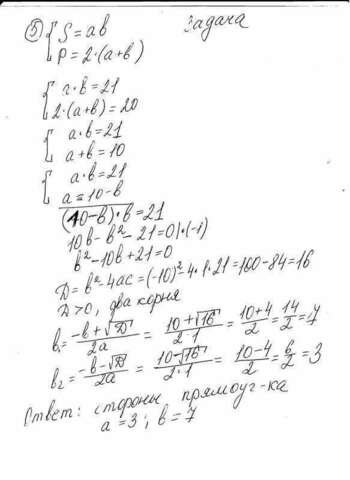 ⑤ { S = ab Задача
P = 2·(a+b)
{ a·b = 21
2·(a+b) = 20
{ a·b = 21
a+b = 10
{ a·b = 21
a = 10-b
(10-b)·b = 21
10b - b² - 21 = 0 |·(-1)
b² - 10b + 21 = 0
D = b² - 4ac = (-10)² - 4·1·21 = 100 - 84 = 16
D > 0, два корня
b₁ = (-b+√D)/2a = (10+√16)/(2·1) = (10+4)/2 = 14/2 = 7
b₂ = (-b-√D)/2a = (10-√16)/(2·1) = (10-4)/2 = 6/2 = 3
Ответ: стороны прямоуг-ка
a = 3; b = 7